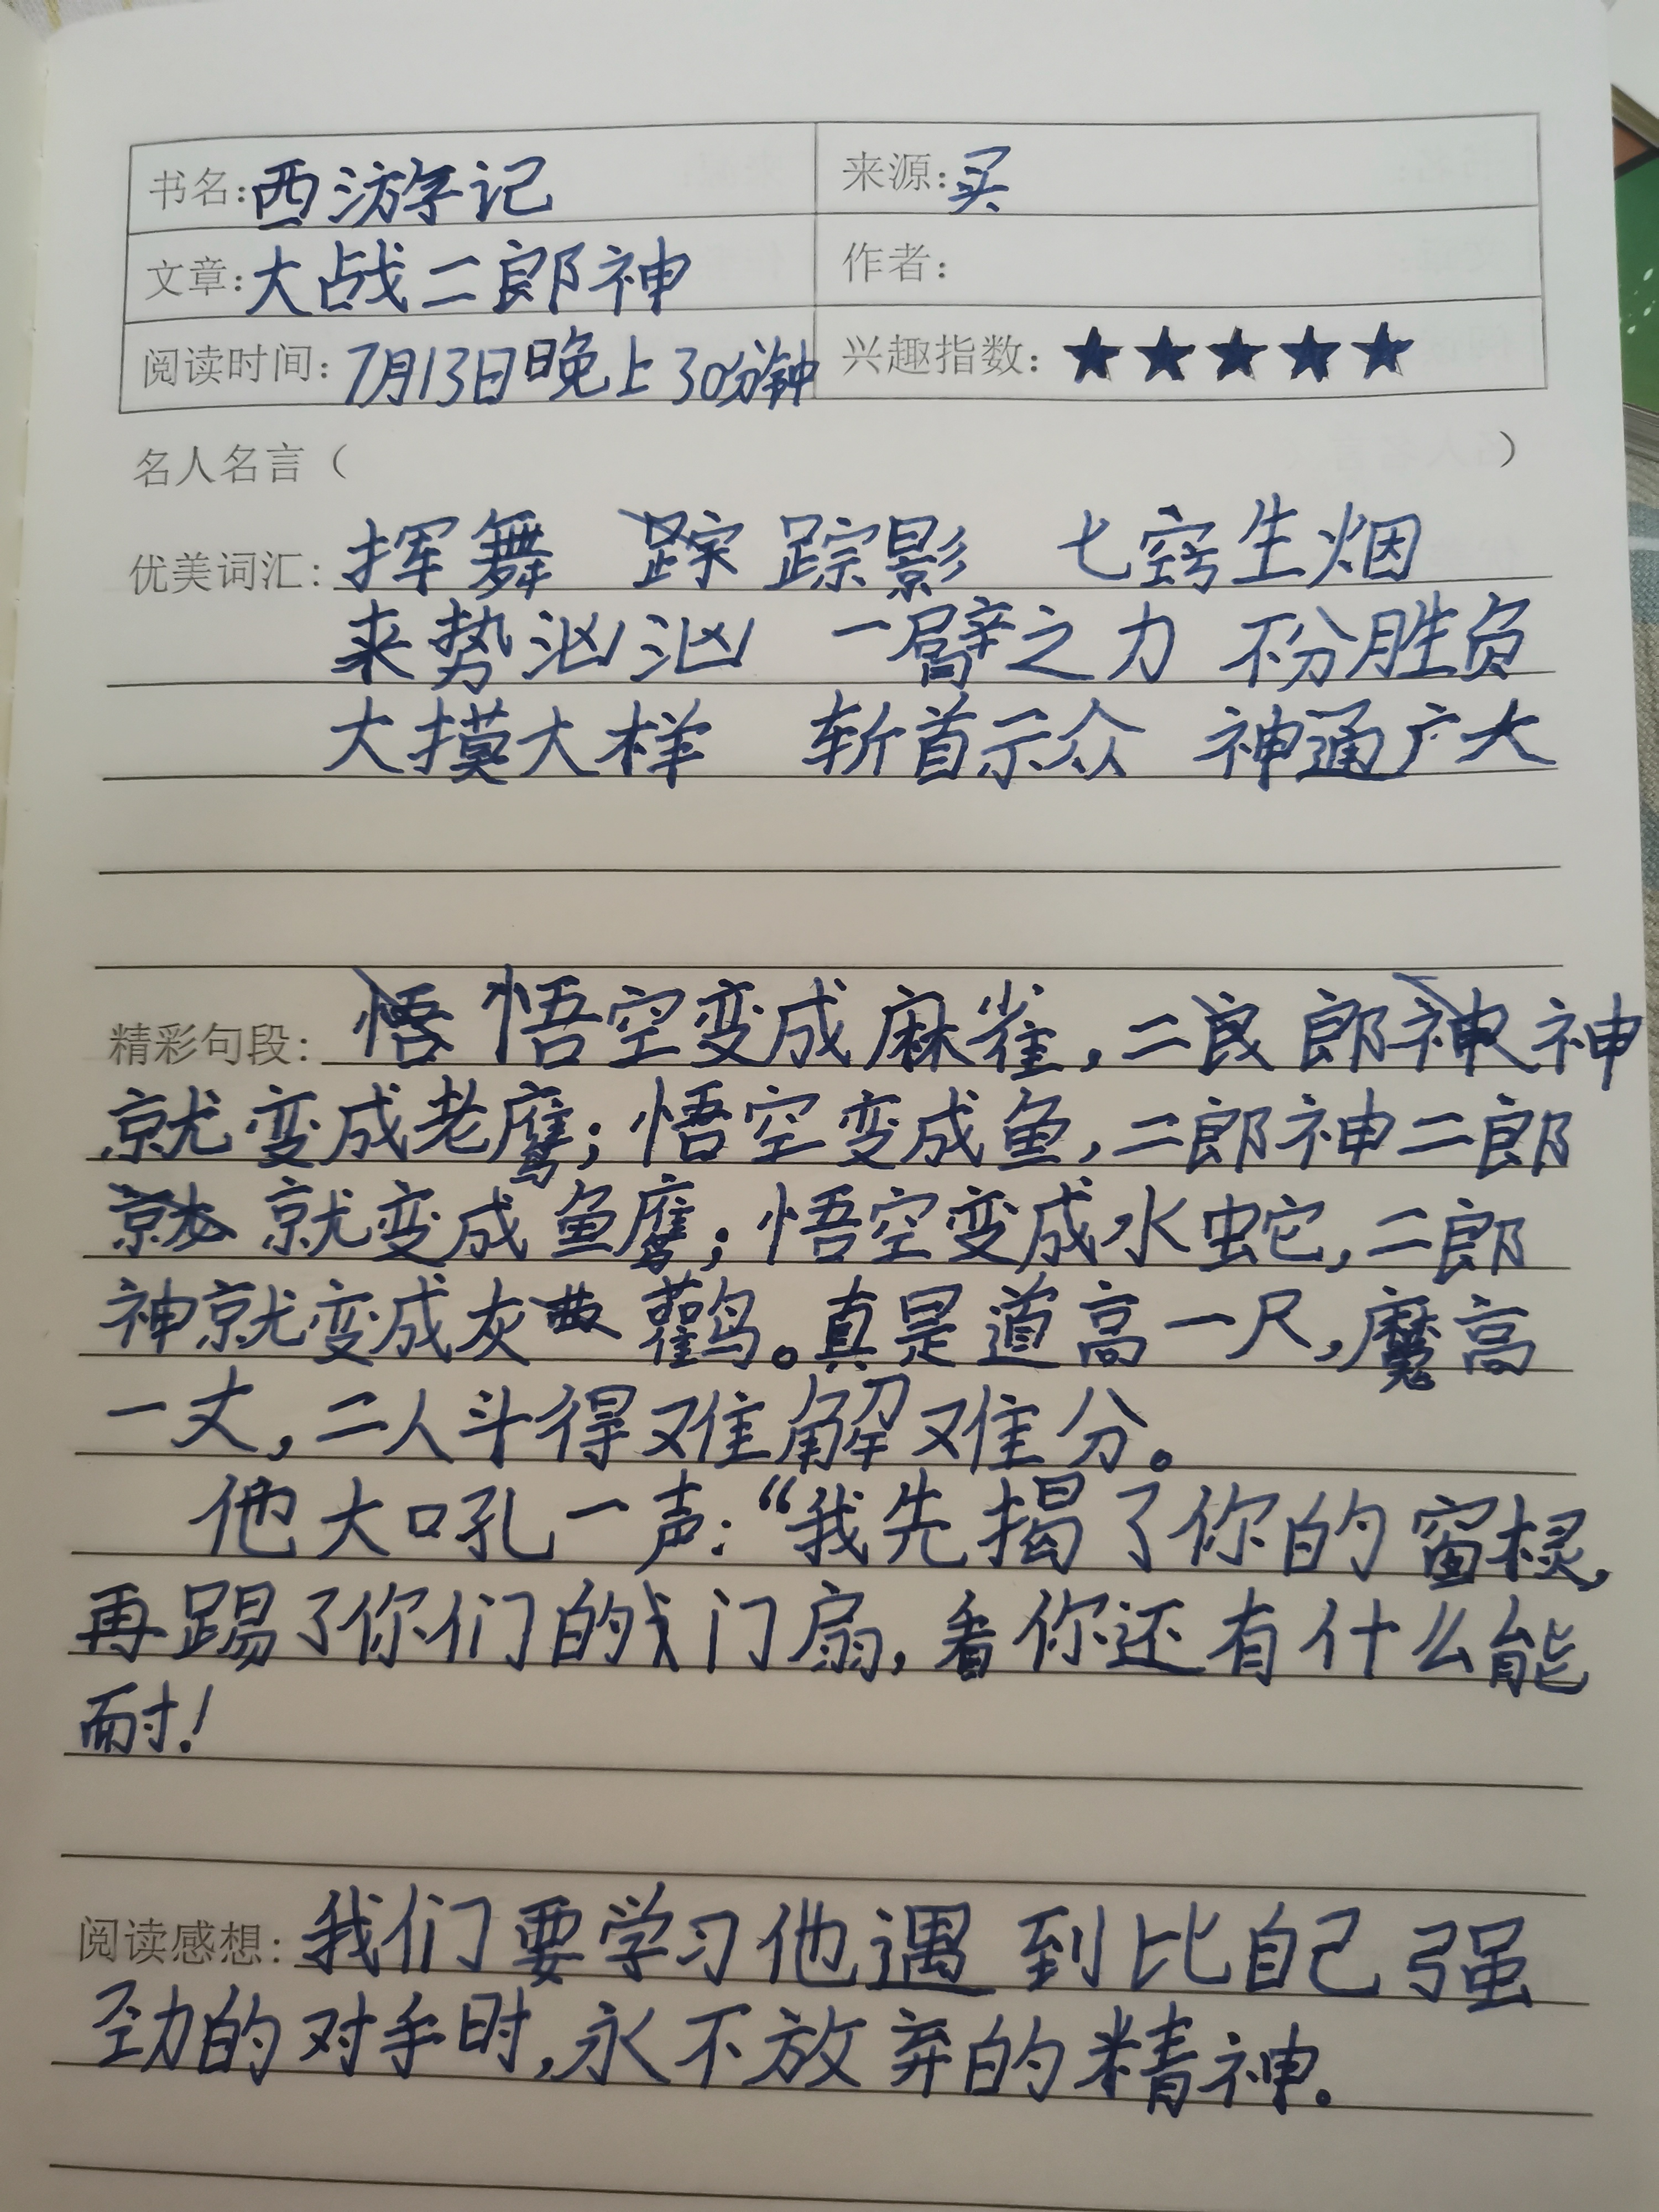 书名:西游记 来源:买
文章:大战二郎神 作者:
阅读时间:7月13日晚上30分钟 兴趣指数:★★★★★
名人名言( )
优美词汇:挥舞 踪影 七窍生烟
来势汹汹 一臂之力 不分胜负
大摸大样 斩首示众 神通广大
精彩句段:悟空变成麻雀,二郎神
就变成老鹰;悟空变成鱼,二郎神二郎
就变成鱼鹰;悟空变成水蛇,二郎
神就变成灰鹳。真是道高一尺,魔高
一丈,二人斗得难解难分。
他大口吼一声:“我先揭了你的窗棂,
再踢了你们的门扇,看你还有什么能
耐!
阅读感想:我们要学习他遇到比自己强
劲的对手时,永不放弃的精神。